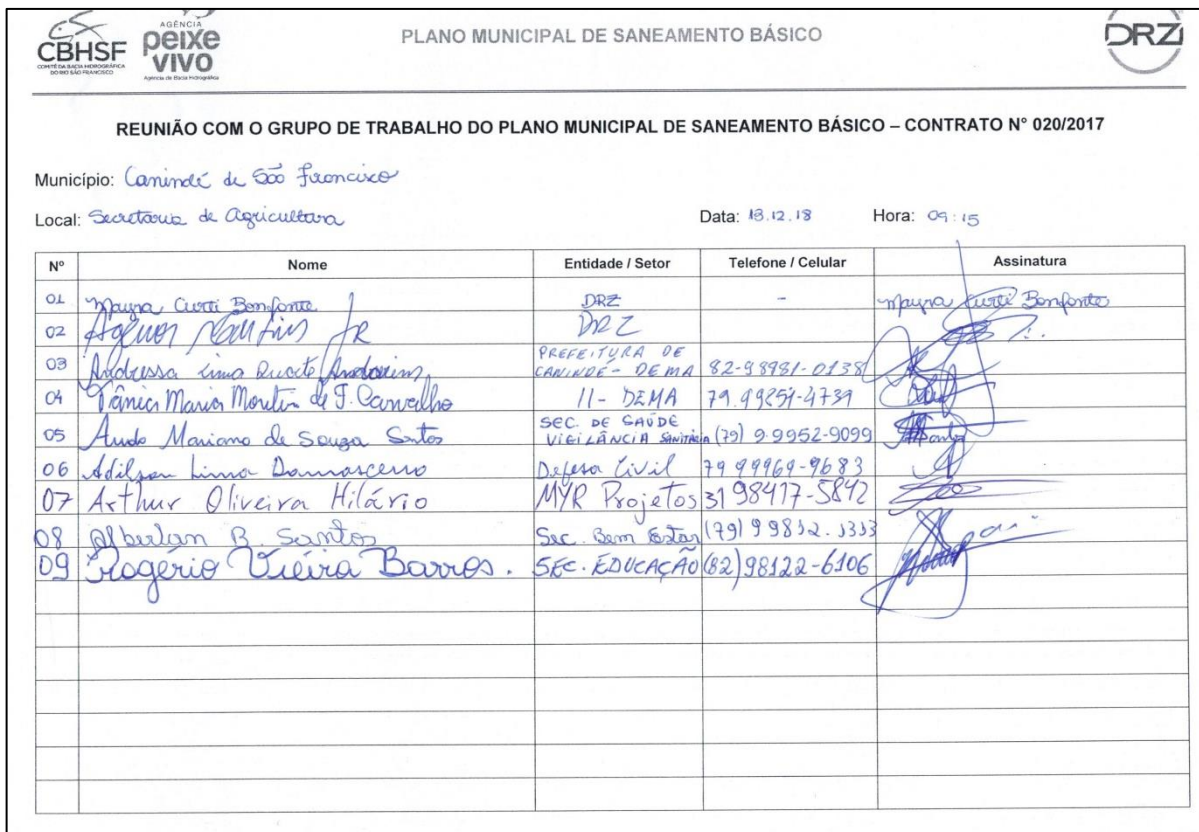 AGÊNCIA
CBHSF peixe
VIVO
COMITÊ DA BACIA HIDROGRÁFICA
DO RIO SÃO FRANCISCO
Agência de Bacia Hidrográfica
PLANO MUNICIPAL DE SANEAMENTO BÁSICO
DRZ
REUNIÃO COM O GRUPO DE TRABALHO DO PLANO MUNICIPAL DE SANEAMENTO BÁSICO – CONTRATO N° 020/2017
Município: Canindé de São Francisco
Local: Secretaria de Agricultura Data: 13.12.18 Hora: 09:15
Nº Nome Entidade / Setor Telefone / Celular Assinatura
01 Mayra Curti Bonfante DRZ - Mayra Curti Bonfante
02 Martins Jr DRZ
03 Andressa Lima Duarte PREFEITURA DE
CANINDÉ - DEMA 82-98981-0138
04 Tânia Maria de F. Carvalho 11- DEMA 79.99254-4739
05 Mariano de Souza Santos SEC. DE SAÚDE
VIGILÂNCIA SANITÁRIA (79) 9.9952-9099
06 Adilson Lima Damasceno Defesa Civil 79 99969-9683
07 Arthur Oliveira Hilário MYR Projetos 31 98417-5842
08 Alberlan B. Santos Sec. Bem Estar (79) 99832.3333
09 Rogério Vieira Barros. SEC. EDUCAÇÃO (82) 98122-6106